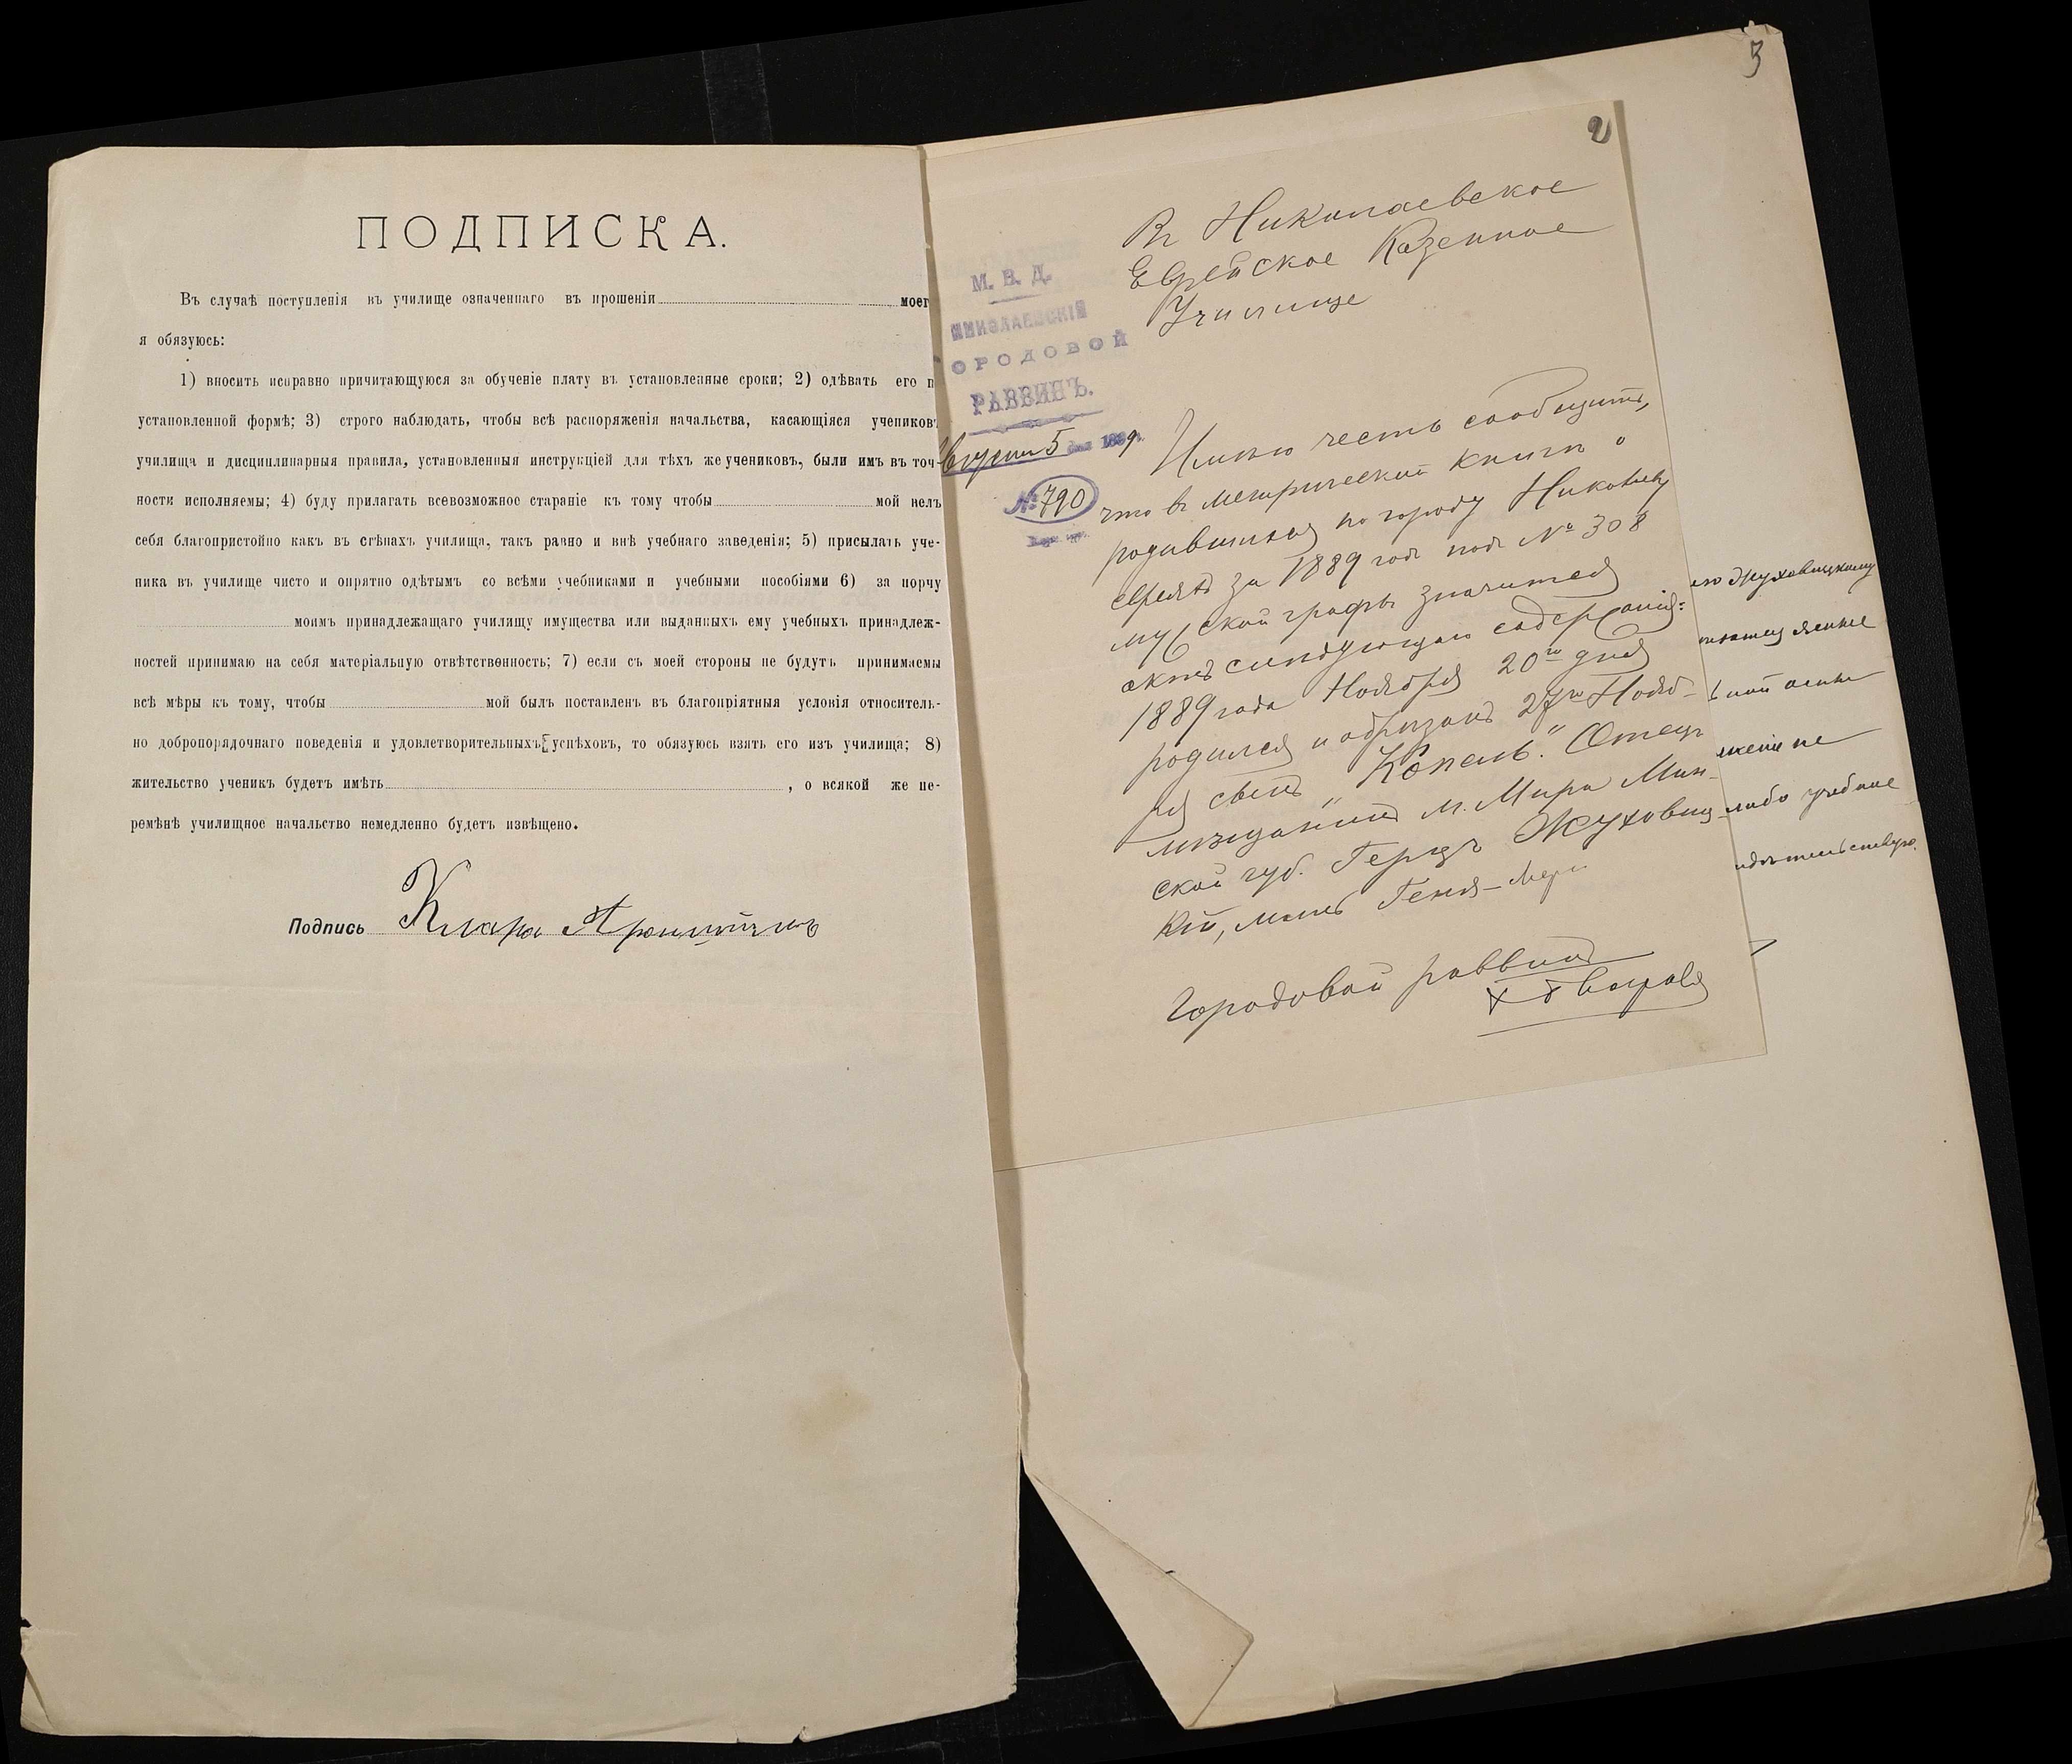 ПОДПИСКА.
Въ случаѣ поступленія въ училище означеннаго въ прошеніи моег
я обязуюсь:
1) вносить исправно причитающуюся за обученіе плату въ установленные сроки; 2) одѣвать его п
установленной формѣ; 3) строго наблюдать, чтобы всѣ распоряженія начальства, касающіяся учениковъ
училища и дисциплинарныя правила, установленныя инструкціей для тѣхъ же учениковъ, были имъ въ точ-
ности исполняемы; 4) буду прилагать всевозможное стараніе къ тому чтобы мой велъ
себя благопристойно какъ въ стѣнахъ училища, такъ равно и внѣ учебнаго заведенія; 5) присылать уче-
ника въ училище чисто и опрятно одѣтымъ со всѣми учебниками и учебными пособіями 6) за порчу
моимъ принадлежащаго училищу имущества или выданныхъ ему учебныхъ принадлеж-
ностей принимаю на себя матеріальную отвѣтственность; 7) если съ моей стороны не будутъ принимаемы
всѣ мѣры къ тому, чтобы мой былъ поставленъ въ благопріятныя условія относитель-
но добропорядочнаго поведенія и удовлетворительныхъ успѣховъ, то обязуюсь взять его изъ училища; 8)
жительство ученикъ будетъ имѣть , о всякой же пе-
ремѣнѣ училищное начальство немедленно будетъ извѣщено.
Подпись Клара
3
2
Въ Николаевское
Еврейское Казенное
Училище
М. В. Д.
НИКОЛАЕВСКІЙ
ОРОДОВОЙ
РАВВИНЪ.
вгуста 5 дня 189
№ 790
Имѣю честь сообщить,
что въ метрической книгѣ о
родившихся по городу Николаеву
евреяхъ за 1889 годъ подъ № 308
мужской графы значится
актъ слѣдующаго содержанія:
1889 года Ноября 20го дня
родился и обрѣзанъ 27го Нояб-
ря сынъ „Копель." Отецъ
мѣщанинъ м. Мира Мин-
ской губ. Герцъ Жуховиц-
кій, мать Геня-Мери
Городовой раввинъ
Жуховицкому
ной оспы
не
либо учебное